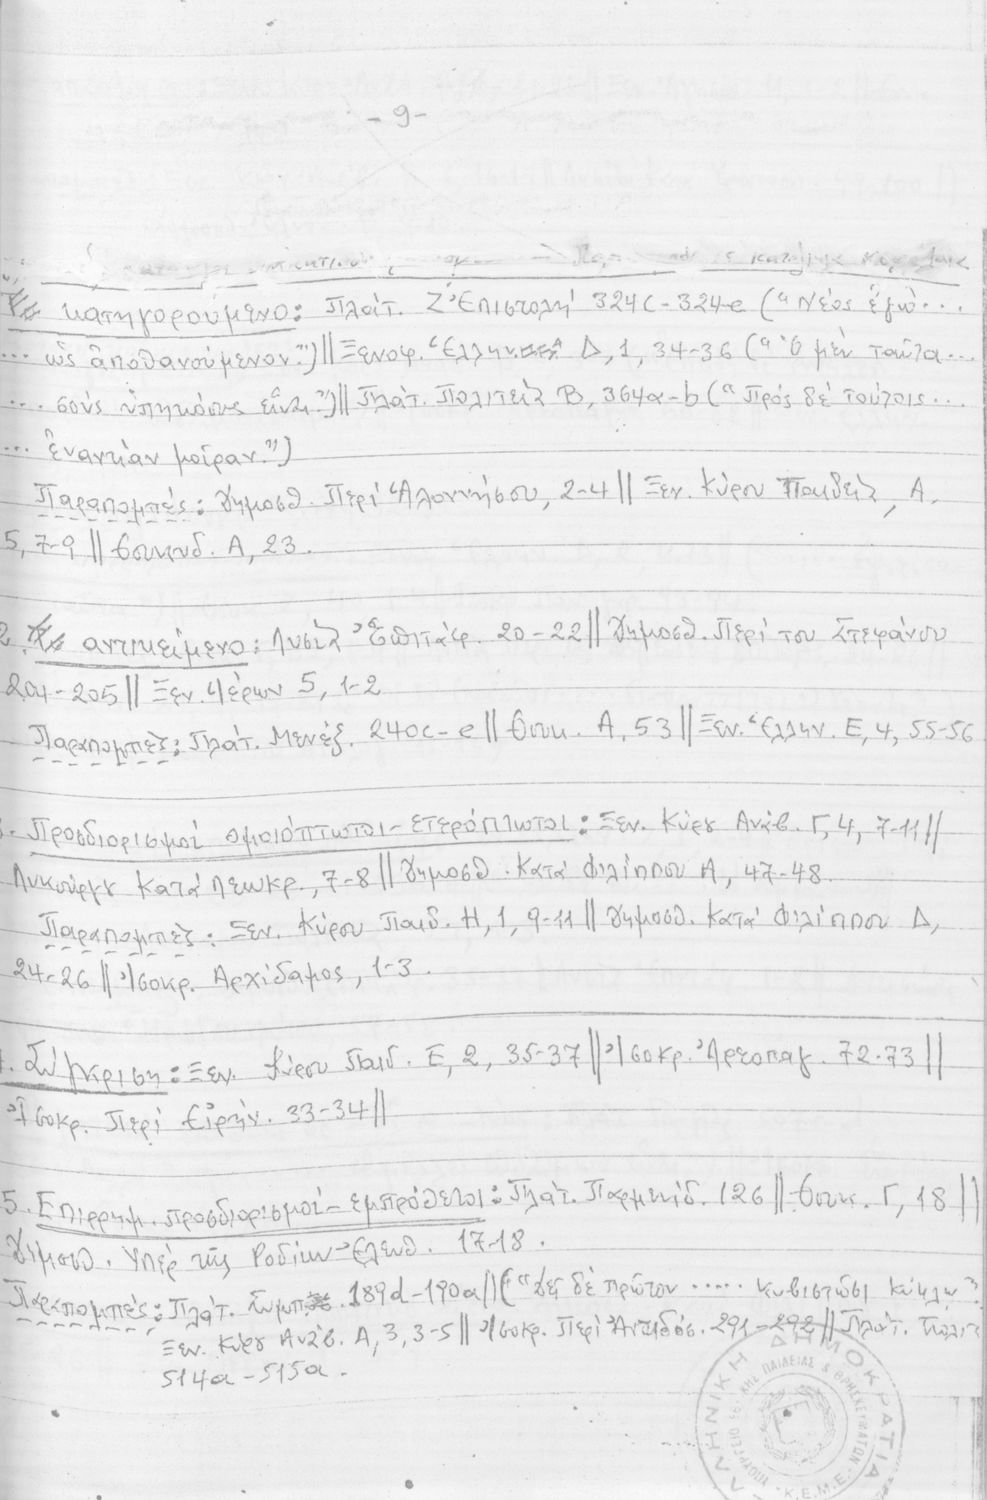 - 9 -
κατηγορούμενο: Πλάτ. Ζ' Ἐπιστολή 324c - 324e ("Νέος ἐγώ...
... ὡς ἀποθανούμενον.") || Ξενοφ. Ἑλλην. Δ, 1, 34-36 ("Ὁ μέν ταῦτα...
... σούς ὑπηκόους εἶναι.") || Πλάτ. Πολιτεία Β, 364a-b ("Πρός δέ τούτοις...
... ἐναντίαν μοῖραν.")
Παραπομπές: Δημοσθ. Περί Ἁλοννήσου, 2-4 || Ξεν. Κύρου Παιδεία, Α,
5, 7-9 || Θουκυδ. Α, 23.
2. αντικείμενο: Λυσία Ἐπιτάφ. 20-22 || Δημοσθ. Περί του Στεφάνου
204-205 || Ξεν. Ἱέρων 5, 1-2
Παραπομπές: Πλάτ. Μενέξ. 240c-e || Θουκ. Α, 53 || Ξεν. Ἑλλην. Ε, 4, 55-56
. Προσδιορισμοί ομοιόπτωτοι - ετερόπτωτοι: Ξεν. Κύρου Ανάβ. Γ, 4, 7-11 ||
Λυκούργου Κατά Λεωκρ., 7-8 || Δημοσθ. Κατά Φιλίππου Α, 47-48.
Παραπομπές: Ξεν. Κύρου Παιδ. Η, 1, 9-11 || Δημοσθ. Κατά Φιλίππου Δ,
24-26 || Ἰσοκρ. Αρχίδαμος, 1-3.
. Σύγκριση: Ξεν. Κύρου Παιδ. Ε, 2, 35-37 || Ἰσοκρ. Ἀρεοπαγ. 72-73 ||
Ἰσοκρ. Περί Εἰρήν. 33-34 ||
5. Επιρρημ. προσδιορισμοί - εμπρόθετοι: Πλάτ. Παρμενίδ. 126 || Θουκ. Γ, 18 ||
Δημοσθ. Υπέρ της Ροδίων Ἐλευθ. 17-18.
Παραπομπές: Πλάτ. Συμπ. 189d - 190a || ("Δεῖ δέ πρῶτον ..... κυβιστῶσι κύκλῳ"
Ξεν. Κύρου Ανάβ. Α, 3, 3-5 || Ἰσοκρ. Περί Ἀντιδόσ. 291-292 || Πλάτ. Πολιτ
514a - 515a.
ΕΛΛΗΝΙΚΗ ΔΗΜΟΚΡΑΤΙΑ
ΥΠΟΥΡΓΕΙΟ ΕΘ. ΚΗΣ ΠΑΙΔΕΙΑΣ & ΘΡΗΣΚΕΥΜΑΤΩΝ
Κ.Ε.Μ.Ε.